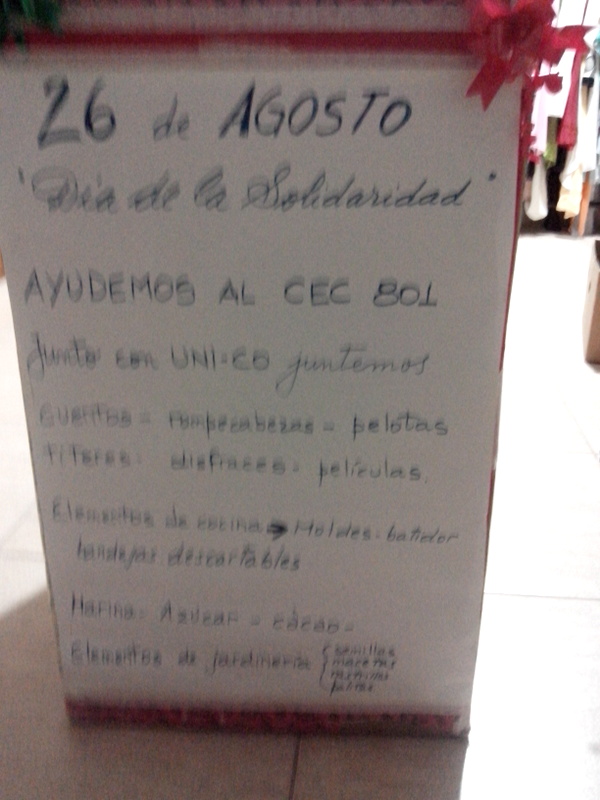 26 de AGOSTO
"Día de la Solidaridad"
AYUDEMOS AL CEC 801
Junto con UNI-CO juntemos
cuentos - rompecabezas - pelotas
títeres - disfraces - películas.
Elementos de cocina → Moldes - batidor
bandejas descartables
Harina - Azúcar - cacao -
Elementos de jardinería { semillas
macetas
palas